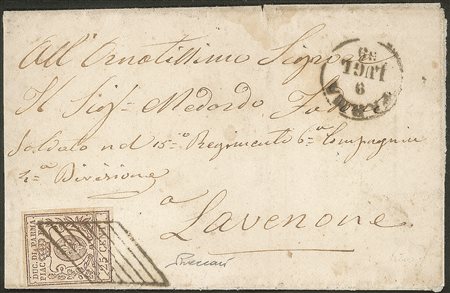 All'Ornatissimo Signor
Il Sigr Medordo
Soldato nel 15=o Regimento 6=a Compagnia
4=a Divisione
a
Lavenone
PARMA
9
LUGL
59
DUC. DI PARMA
PIAC. ECC.
25 CENT.